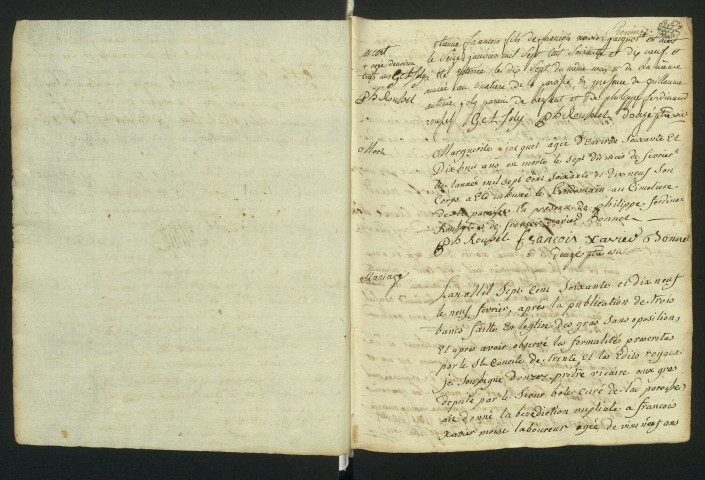 Premier
etienne francois fils de francois xavier jacquot est mort
le seize janvier mil sept cent soixante et dix neuf et
été enterré le dix sept du même mois et de la même
année au Cimetiere de la paroisse en presence de Guillaume
antoine joly parrain de l'enfant et de philippe ferdinand
roussel G A Joly Ph Roussel
mort
Ph Roussel
Mort
Marguerite jacquot agée d'environ soixante et
Dix huit ans est morte le sept du mois de fevrier
de l'année mil sept cent soixante et dix neuf son
Corps a été inhumé le Lendemain au Cimetiere
de la paroisse En presence de philippe ferdinand
Roussel et de francois xavier Bonnet
Ph Roussel francois xavier Bonnet
Mariage
L'an Mil Sept Cent Soixante et dix neuf
le neuf fevrier, après la publication de trois
bants faitte en leglise des gras sans oposition,
Et après avoir observé les formalités prescrites
par le St Concile de trente et les Edits royaux.
je soussigné prêtre vicaire aux gras
deputé par le Sieur bole curé de la paroisse
ait donné la bénédiction nuptiale a francois
xavier moise laboureur agée de vint neuf ans